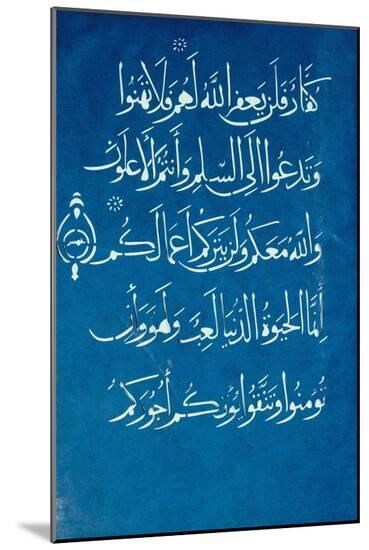 كُفَّارٌ فَلَن يَغْفِرَ اللَّهُ لَهُمْ فَلَا تَهِنُوا
وَتَدْعُوا إِلَى السَّلْمِ وَأَنتُمُ الْأَعْلَوْنَ
وَاللَّهُ مَعَكُمْ وَلَن يَتِرَكُمْ أَعْمَالَكُمْ
إِنَّمَا الْحَيَوٰةُ الدُّنْيَا لَعِبٌ وَلَهْوٌ وَإِن
تُؤْمِنُوا وَتَتَّقُوا يُؤْتِكُمْ أُجُورَكُمْ